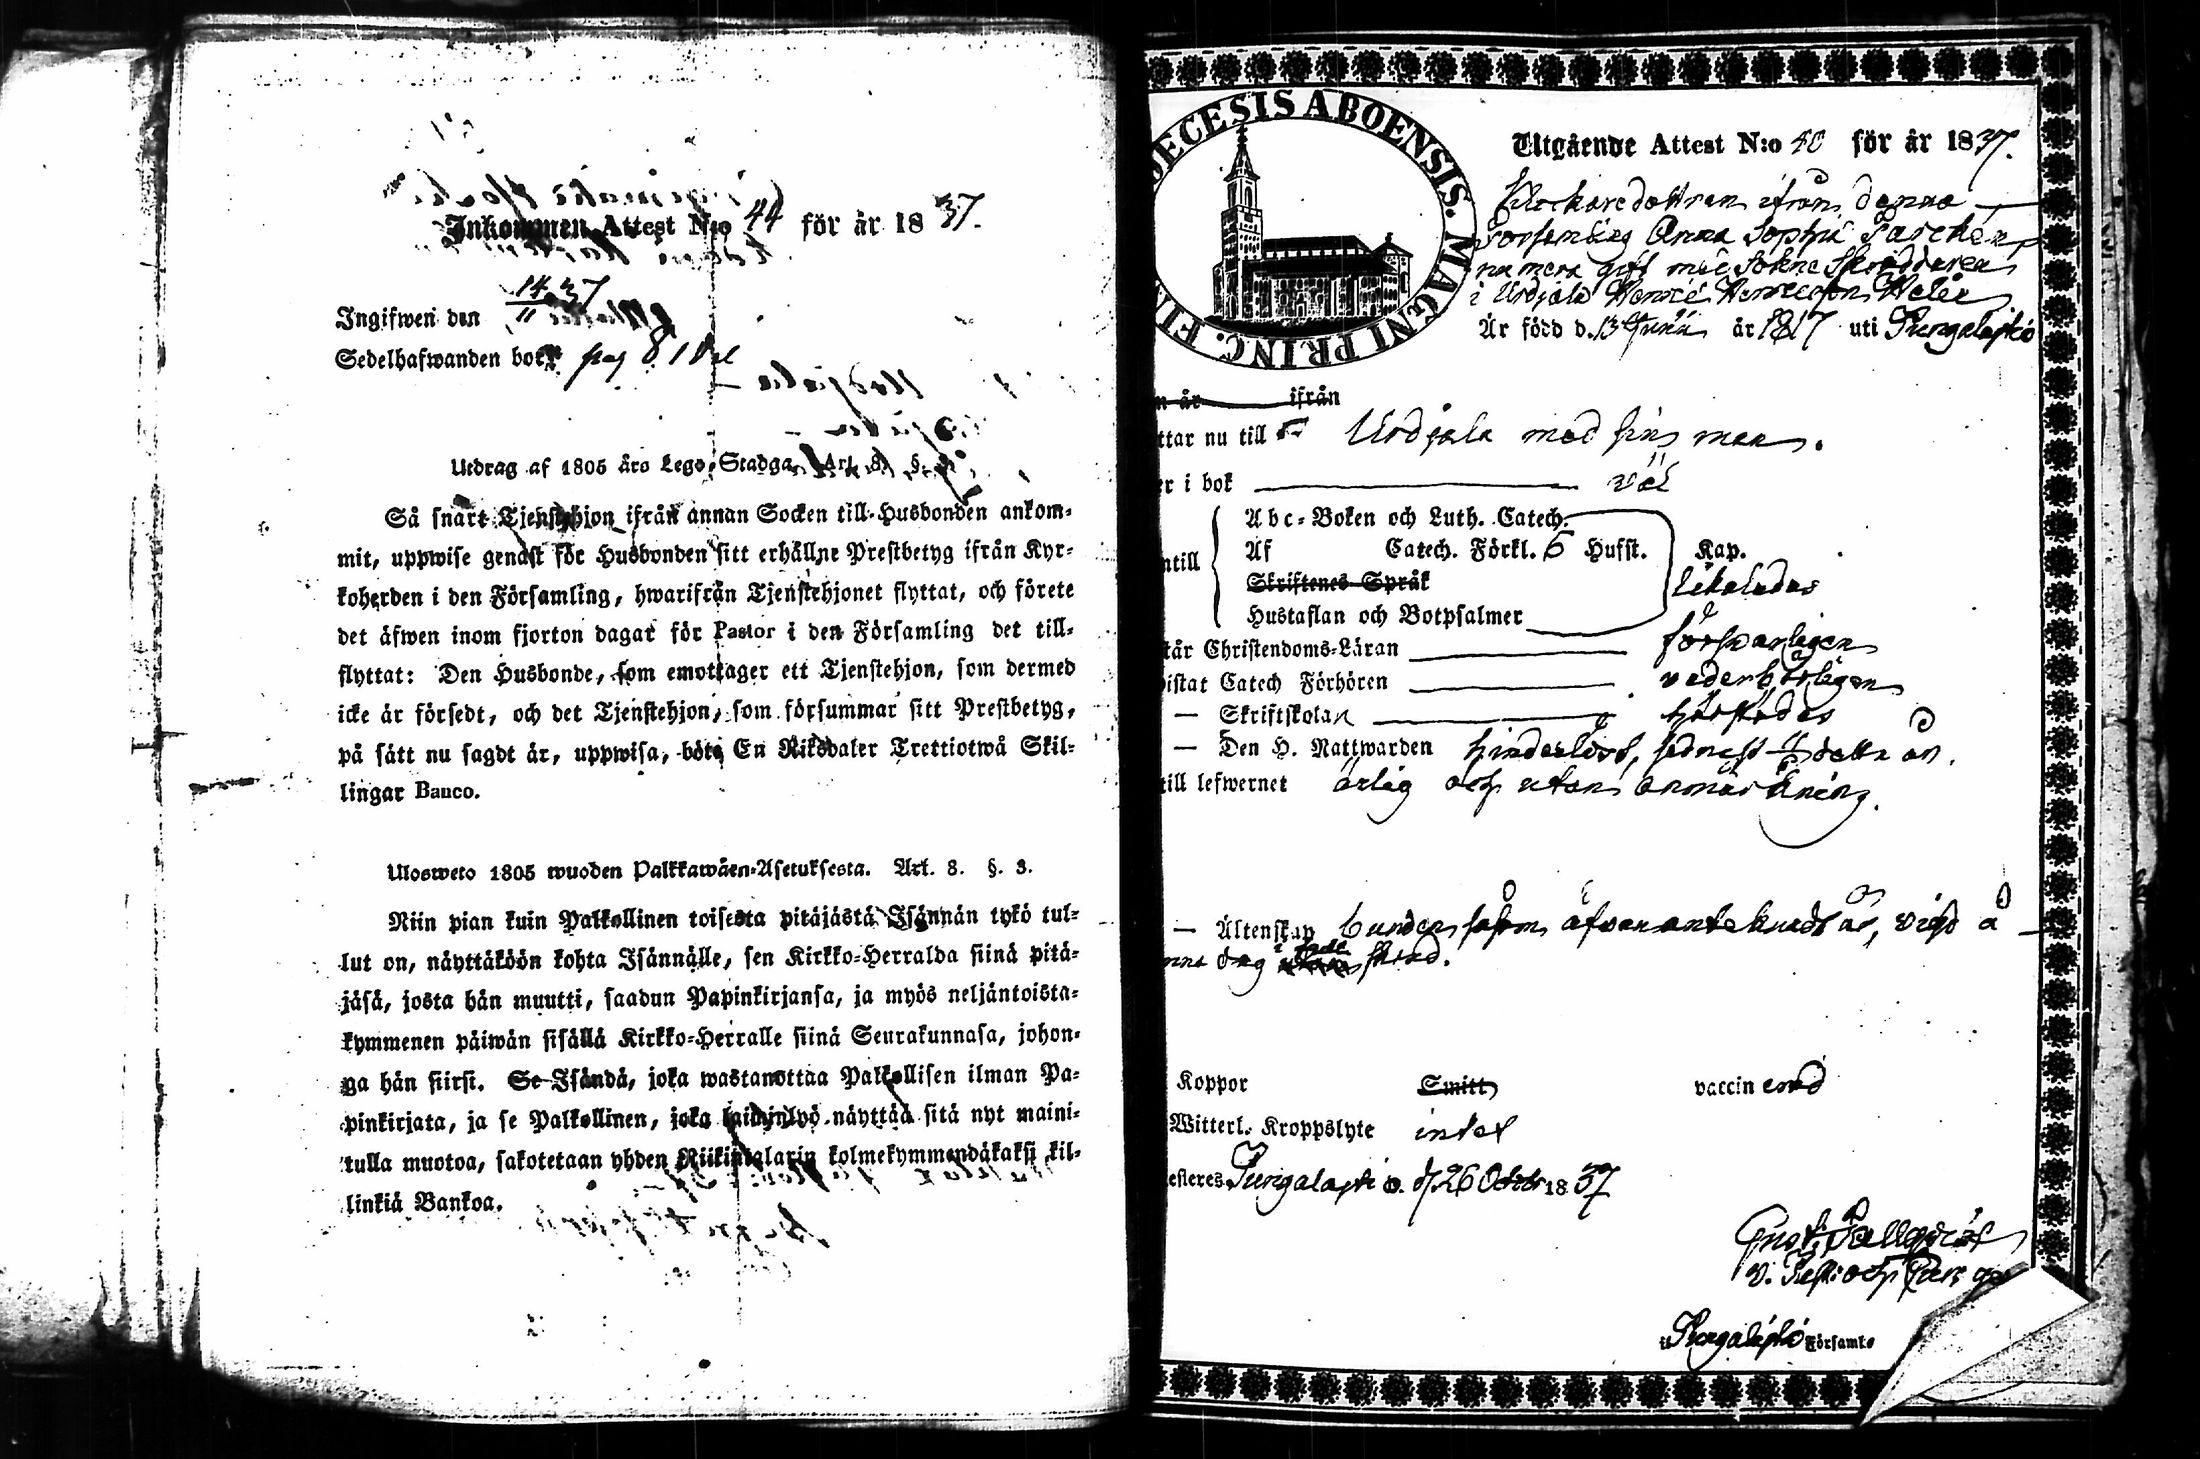 Inkommen Attest N:o 44 för år 1837.
Ingifwen den 14/11 37
Sedelhafwanden bor pag 81
Utdrag af 1805 års Lego-Stadga, Art. 8. §.
Så snart Tjenstehjon ifrån annan Socken till Husbonden ankom-
mit, uppwise genast för Husbonden sitt erhållne Prestbetyg ifrån Kyr-
koherden i den Församling, hwarifrån Tjenstehjonet flyttat, och förete
det äfwen inom fjorton dagar för Pastor i den Församling det till-
flyttat: Den Husbonde, som emottager ett Tjenstehjon, som dermed
icke är försedt, och det Tjenstehjon, som försummar sitt Prestbetyg,
på sätt nu sagdt är, uppwisa, böte En Riksdaler Trettiotwå Skil-
lingar Banco.
Ulosweto 1805 wuoden Palkkawäen-Asetuksesta. Art. 8. §. 3.
Niin pian kuin Palkollinen toisesta pitäjästä Isännän tykö tul-
lut on, näyttäköön kohta Isännälle, sen Kirkko-Herralda siinä pitä-
jäsä, josta hän muutti, saadun Papinkirjansa, ja myös neljäntoista-
kymmenen päiwän sisällä Kirkko-Herralle siinä Seurakunnasa, johon-
ga hän siirsi. Se Isändä, joka wastanottaa Palkollisen ilman Pa-
pinkirjata, ja se Palkollinen, joka laiminlyö näyttää sitä nyt maini-
tulla muotoa, sakotetaan yhden Riikintalarin kolmekymmendäkaksi kil-
linkiä Bankoa.
DECESIS ABOENSIS. MAGNI PRINC. FIN
Utgående Attest N:o 40 för år 1837.
Klockaredottren ifrån denna
Församling Anna Sophia
numera gift med Sockne Skräddaren
i Urdjala Henric Henricsson
Är född d. 13 Junii år 1817 uti Pungalaitio
n är ifrån
ttar nu till Urdjala med sin man.
er i bok väl
Abc-Boken och Luth. Catech.
ntill Af Catech. Förkl. 5 Hufst. Kap.
Skriftenes Språk likaledes
Hustaflan och Botpsalmer
tår Christendoms-Läran försvarligen
istat Catech Förhören vederbörligen
— Skriftskolan
— Den H. Nattwarden hinderlöst, sednast detta år.
till lefwernet ärlig och utan anmärkning.
— Äktenskap bunden såsom äfven antecknadt är, vigd å
nna dag i stånd.
Koppor Smitt vaccinerad
Witterl. Kroppslyte intet
esteres Pungalaitio. d. 26 October 1837
Gust. Pallqvist
v. Past: och
i Pungalaitio Församl.